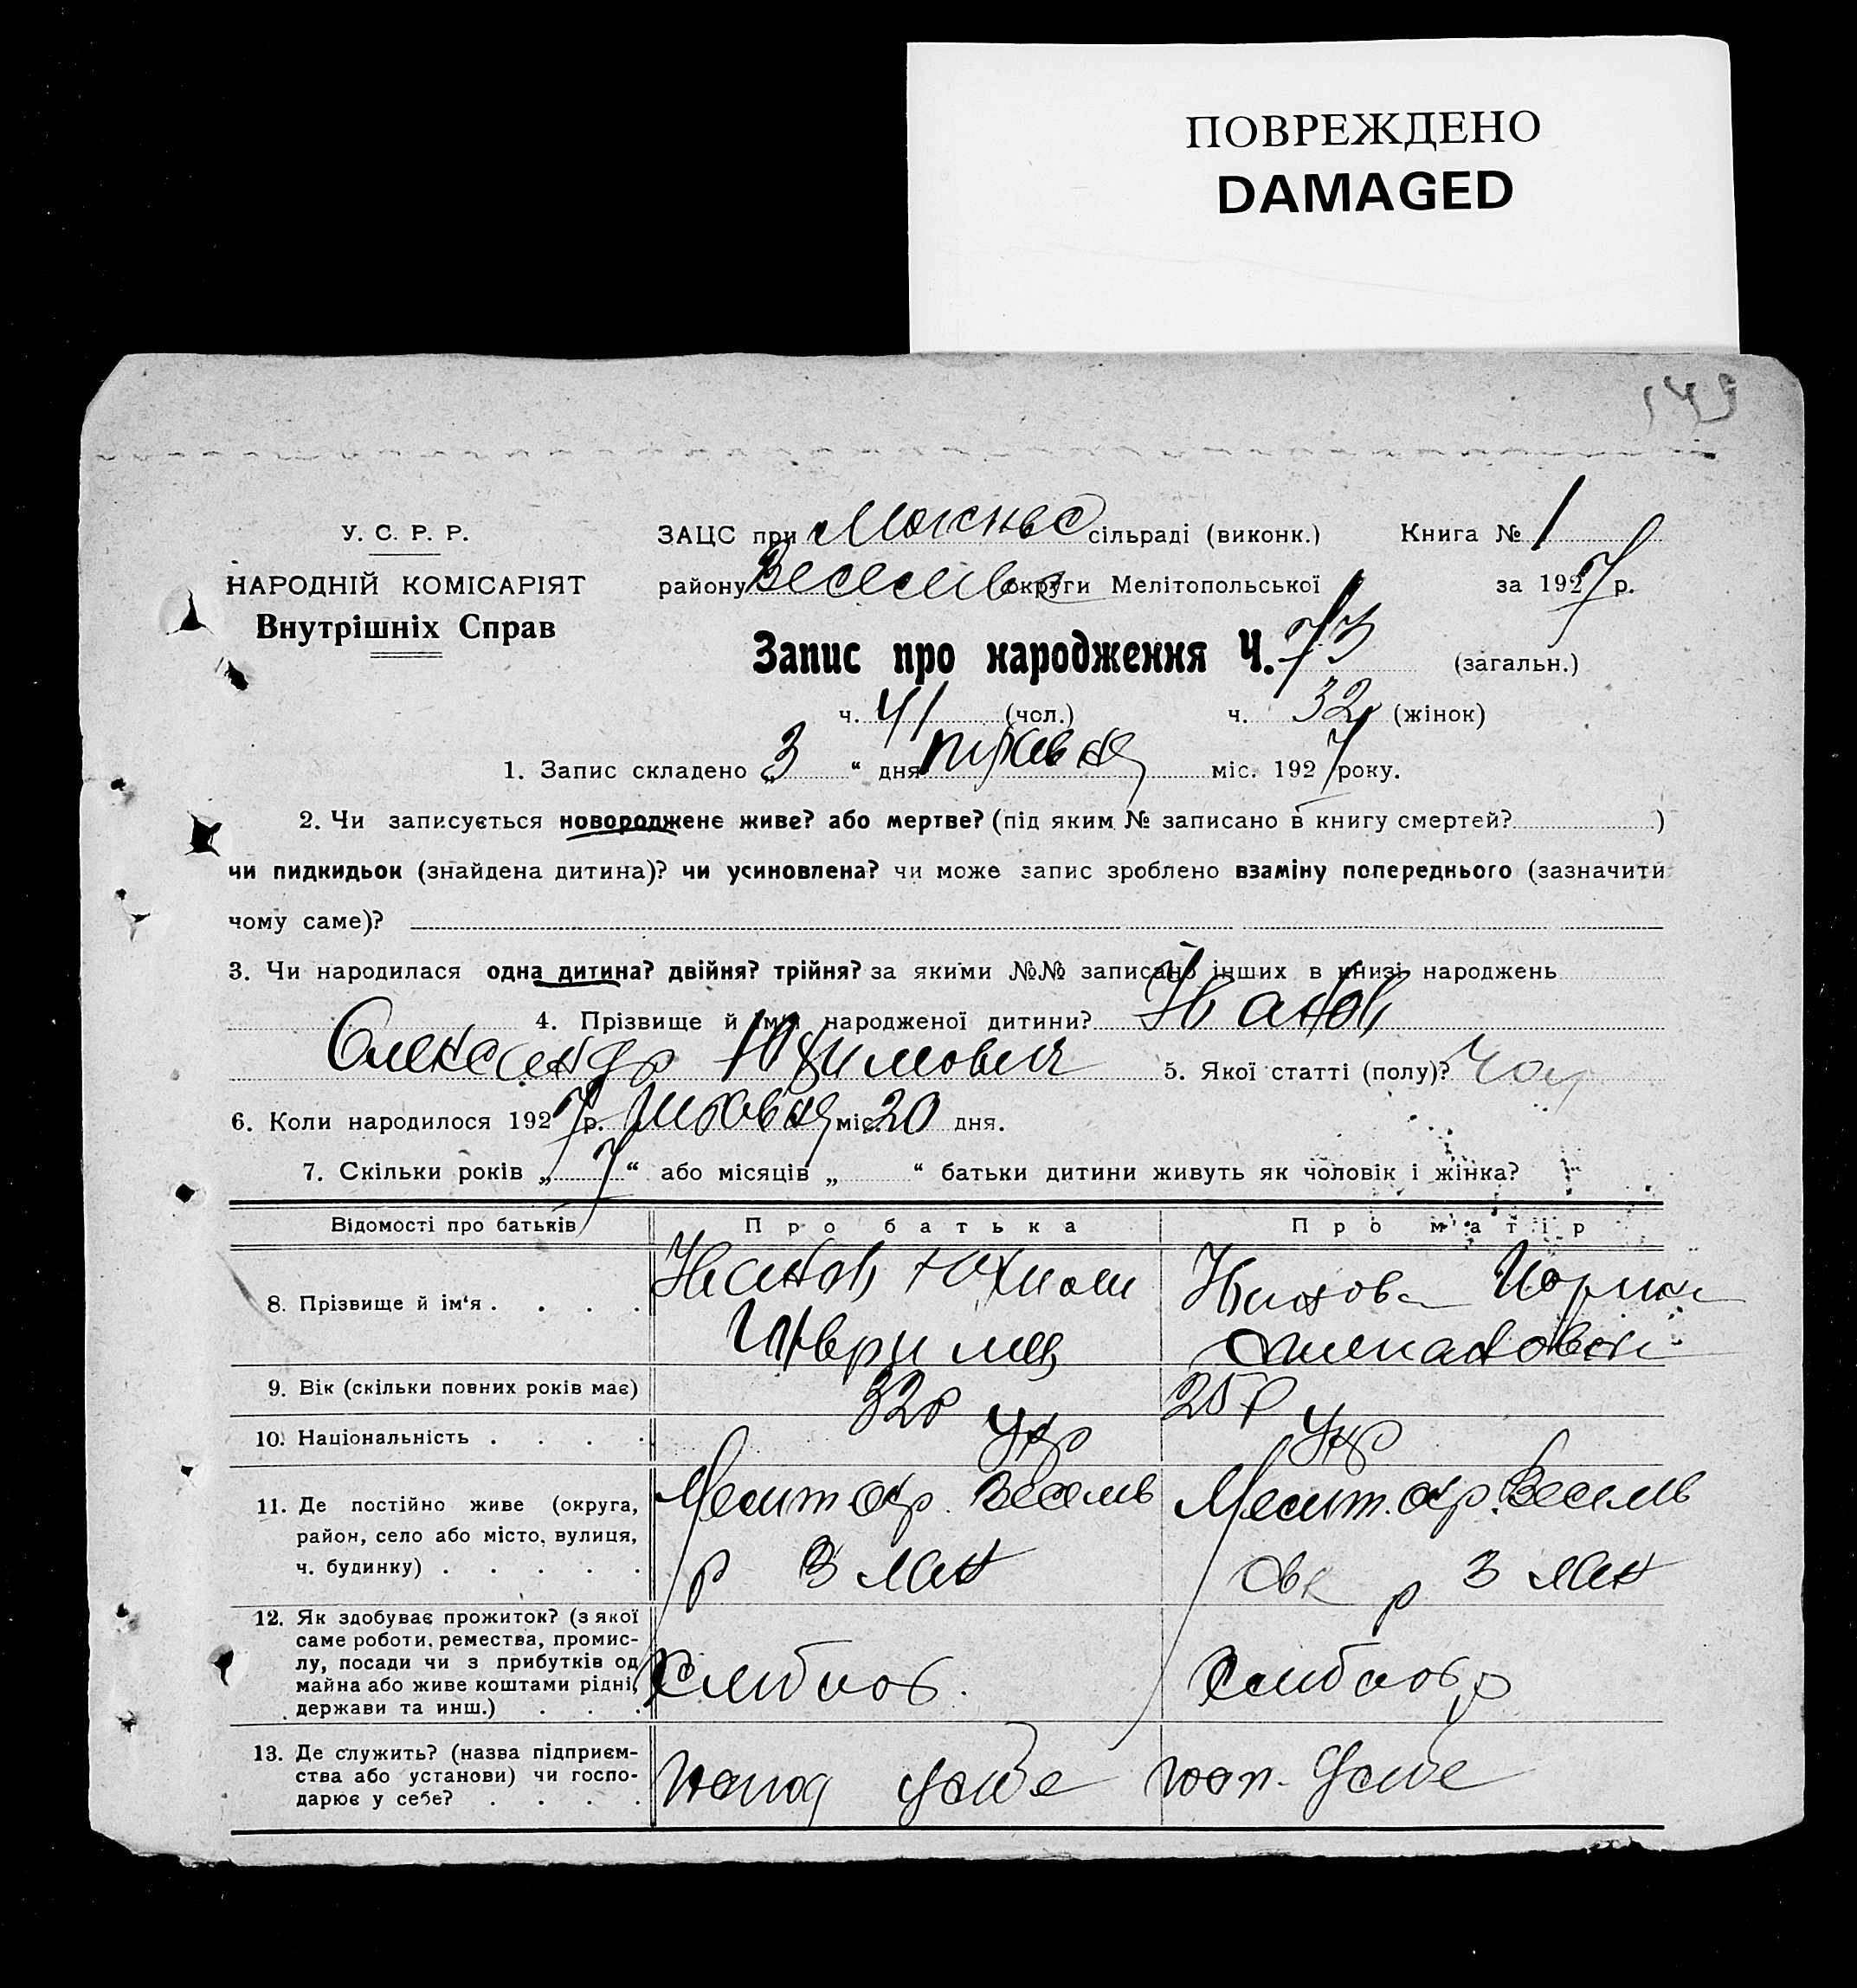 ПОВРЕЖДЕНО
DAMAGED
149
У. С. Р. Р.
НАРОДНІЙ КОМІСАРІЯТ
Внутрішніх Справ
ЗАЦС при сільраді (виконк.) Книга № 1
району Веселівс округи Мелітопольської за 1927 р.
Запис про народження Ч. 73 (загальн.)
ч. 41 (чол.) ч. 32 (жінок)
1. Запис складено „3“ дня травня міс. 1927 року.
2. Чи записується новороджене живе? або мертве? (під яким № записано в книгу смертей? )
чи пидкидьок (знайдена дитина)? чи усиновлена? чи може запис зроблено взаміну попереднього (зазначити
чому саме)?
3. Чи народилася одна дитина? двійня? трійня? за якими №№ записано інших в книзі народжень
4. Прізвище й ім'я народженої дитини? Іванов
Олександр Юхимович 5. Якої статті (полу)? Чол
6. Коли народилося 1927 р. міс. 20 дня.
7. Скільки років „7“ або місяців „ “ батьки дитини живуть як чоловік і жінка?
Відомості про батьків Про батька Про матір
8. Прізвище й ім'я . . . . Іванов Юхим Іванова
9. Вік (скільки повних років має) 32 р 25 р
10. Національність . . . . Укр Укр
11. Де постійно живе (округа, Меліт окр. Веселів Меліт. окр. Веселів
район, село або місто, вулиця, р
ч. будинку) . . . . . р
12. Як здобуває прожиток? (з якої
саме роботи, ремества, промис-
лу, посади чи з прибутків од
майна або живе коштами рідні, Хлібороб. Хлібороб
держави та инш.) . . .
13. Де служить? (назва підприєм-
ства або установи) чи госпо-
дарює у себе? . . . .